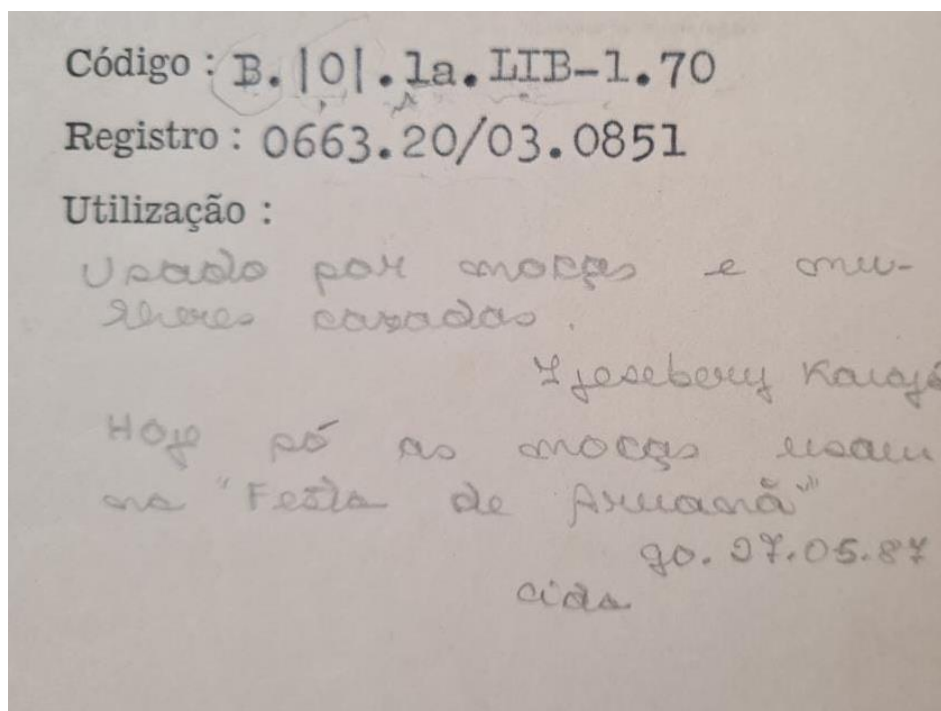 Código : B.|0|.1a.LIB-1.70
Registro : 0663.20/03.0851
Utilização :
Usado por moças e mu-
lheres casadas.
Ijesebery Karajá
Hoje só as moças usam
na "Festa de Aruanã"
go. 27.05.87
Cida